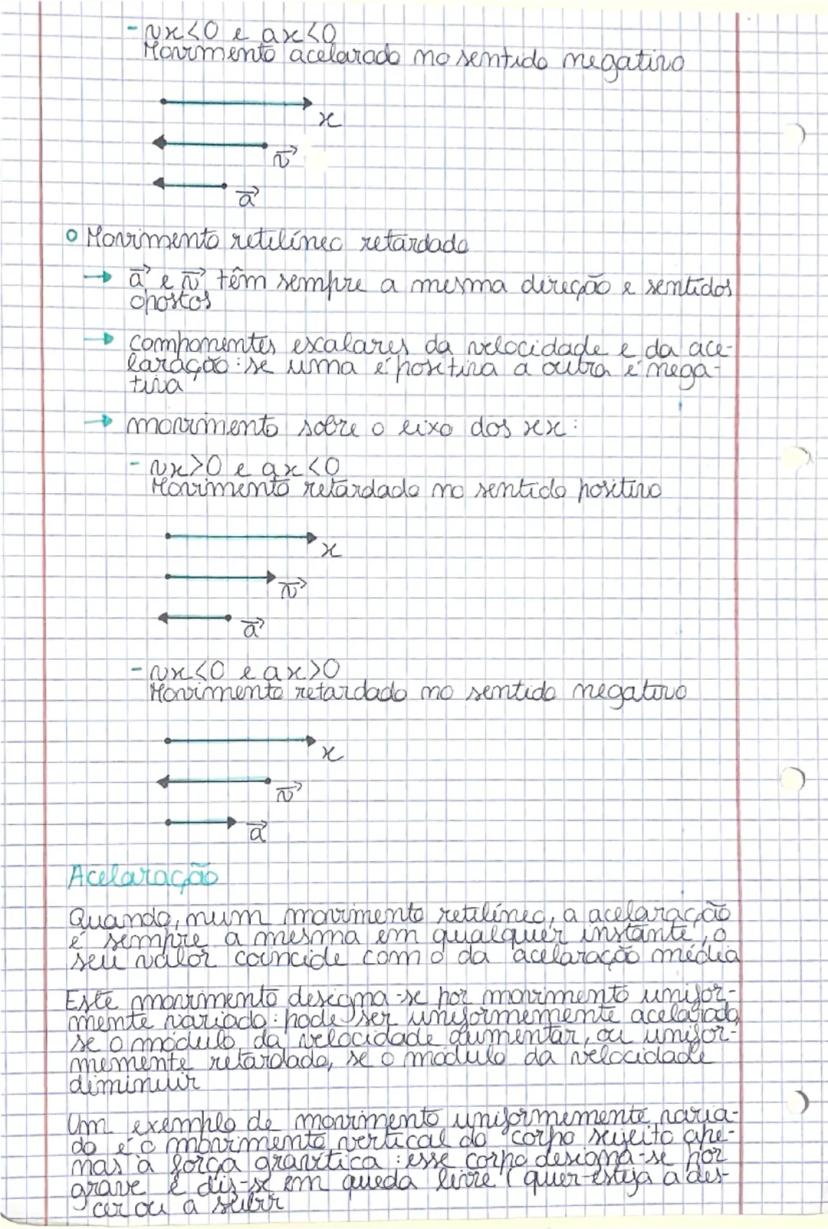 - vx<0 e ax<0
Movimento acelarado no sentido negativo
x
v⃗
a⃗
o Movimento retilíneo retardado
→ a⃗ e v⃗ têm sempre a mesma direção e sentidos
opostos
→ componentes escalares da velocidade e da ace-
laração: se uma é positiva a outra é nega-
tiva
→ movimento sobre o eixo dos xx:
- vx>0 e ax<0
Movimento retardado no sentido positivo
x
v⃗
a⃗
- vx<0 e ax>0
Movimento retardado no sentido negativo
x
v⃗
a⃗
Acelaração
Quando, num movimento retilíneo, a acelaração
é sempre a mesma em qualquer instante, o
seu valor coincide com o da acelaração média
Este movimento designa-se por movimento unifor-
memente variado: pode ser uniformemente acelarado,
se o módulo da velocidade aumentar, ou unifor-
memente retardado, se o módulo da velocidade
diminuir
Um exemplo de movimento uniformemente varia-
do é o movimento vertical do corpo sujeito ape-
nas à força gravítica: esse corpo designa-se por
grave e dis-se em queda livre (quer esteja a des-
cer ou a subir